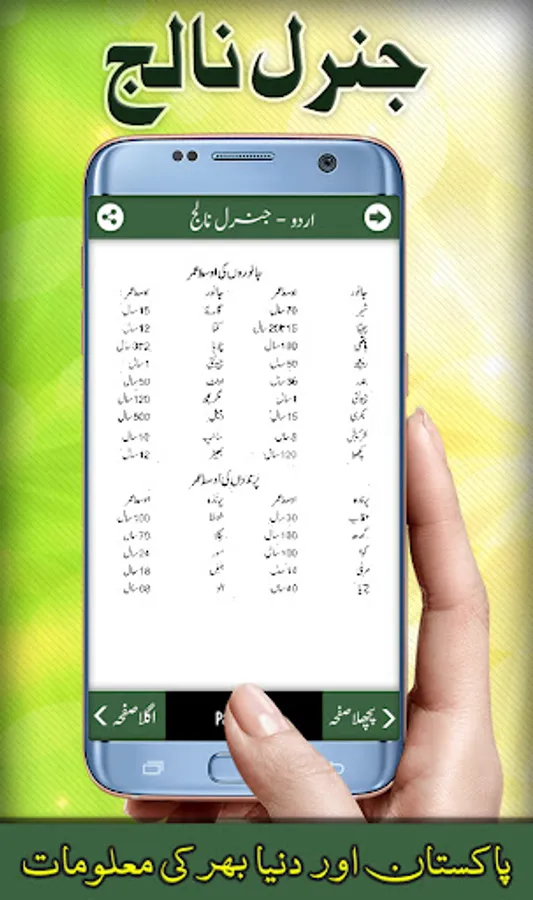 جنرل نالج
اردو - جنرل نالج
جانوروں کی اوسط عمر
جانور اوسط عمر جانور اوسط عمر
شیر 70 سال 15 سال
چیتا 15 سال کتا 12 سال
ہاتھی 100 سال چوہا 2 سال
ریچھ 50 سال 1 سال
بندر 36 سال اونٹ 50 سال
چیونٹی 1 سال مگرمچھ 120 سال
بکری 15 سال وہیل 500 سال
8 سال سانپ 10 سال
کچھوا 120 سال بھیڑ 12 سال
پرندوں کی اوسط عمر
پرندہ اوسط عمر پرندہ اوسط عمر
عقاب 30 سال طوطا 100 سال
گدھ 100 سال بگلا 70 سال
کوا 100 سال مور 24 سال
مرغی سال 18 سال
چڑیا 40 سال الو 68 سال
اگلا صفحہ
پچھلا صفحہ
پاکستان اور دنیا بھر کی معلومات